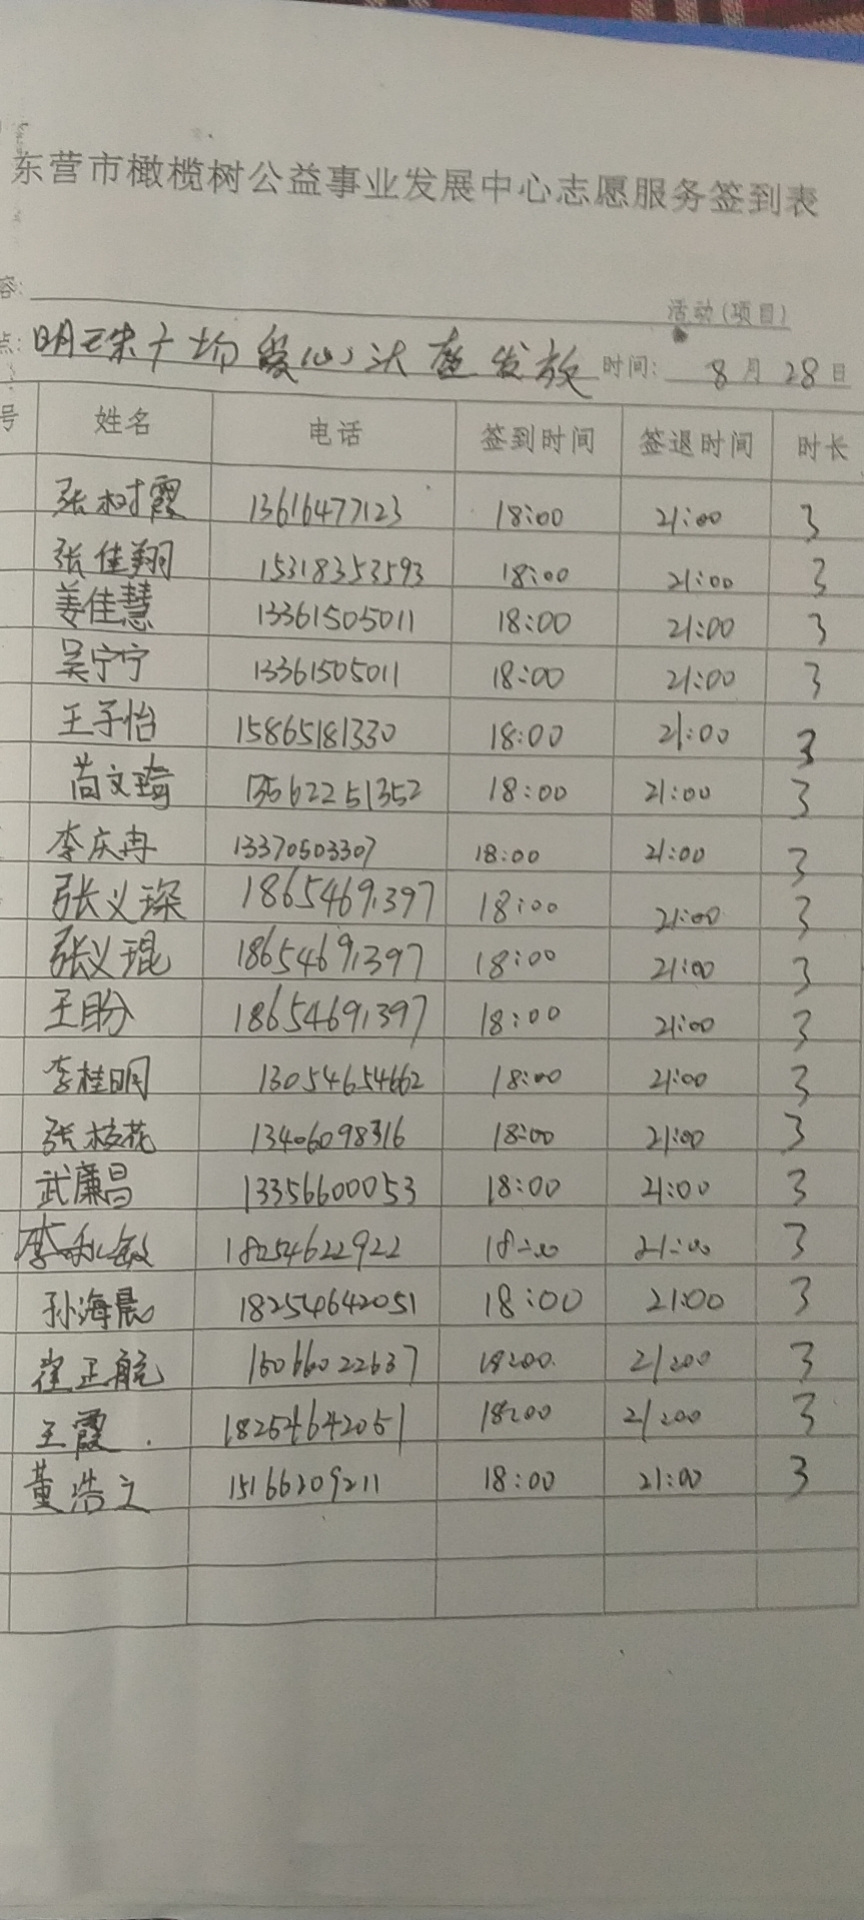 东营市橄榄树公益事业发展中心志愿服务签到表
容: 活动(项目)
点: 明珠广场爱心沃查发放 时间: 8月28日
号 姓名 电话 签到时间 签退时间 时长
张树霞 13616477123 18:00 21:00 3
张佳翔 15318353593 18:00 21:00 3
姜佳慧 13361505011 18:00 21:00 3
吴宁宁 13361505011 18:00 21:00 3
王子怡 15865181330 18:00 21:00 3
苗文琦 13562251352 18:00 21:00 3
李庆冉 13370503307 18:00 21:00 3
张义琛 18654691397 18:00 21:00 3
张义琨 18654691397 18:00 21:00 3
王盼 18654691397 18:00 21:00 3
李桂明 13054654662 18:00 21:00 3
张枝花 13406098316 18:00 21:00 3
武廉昌 13356600053 18:00 21:00 3
李秋敏 18254622922 18:00 21:00 3
孙海晨 18254642051 18:00 21:00 3
崔正航 15066022637 18:00 21:00 3
王霞 18254642051 18:00 21:00 3
董浩文 15166209211 18:00 21:00 3